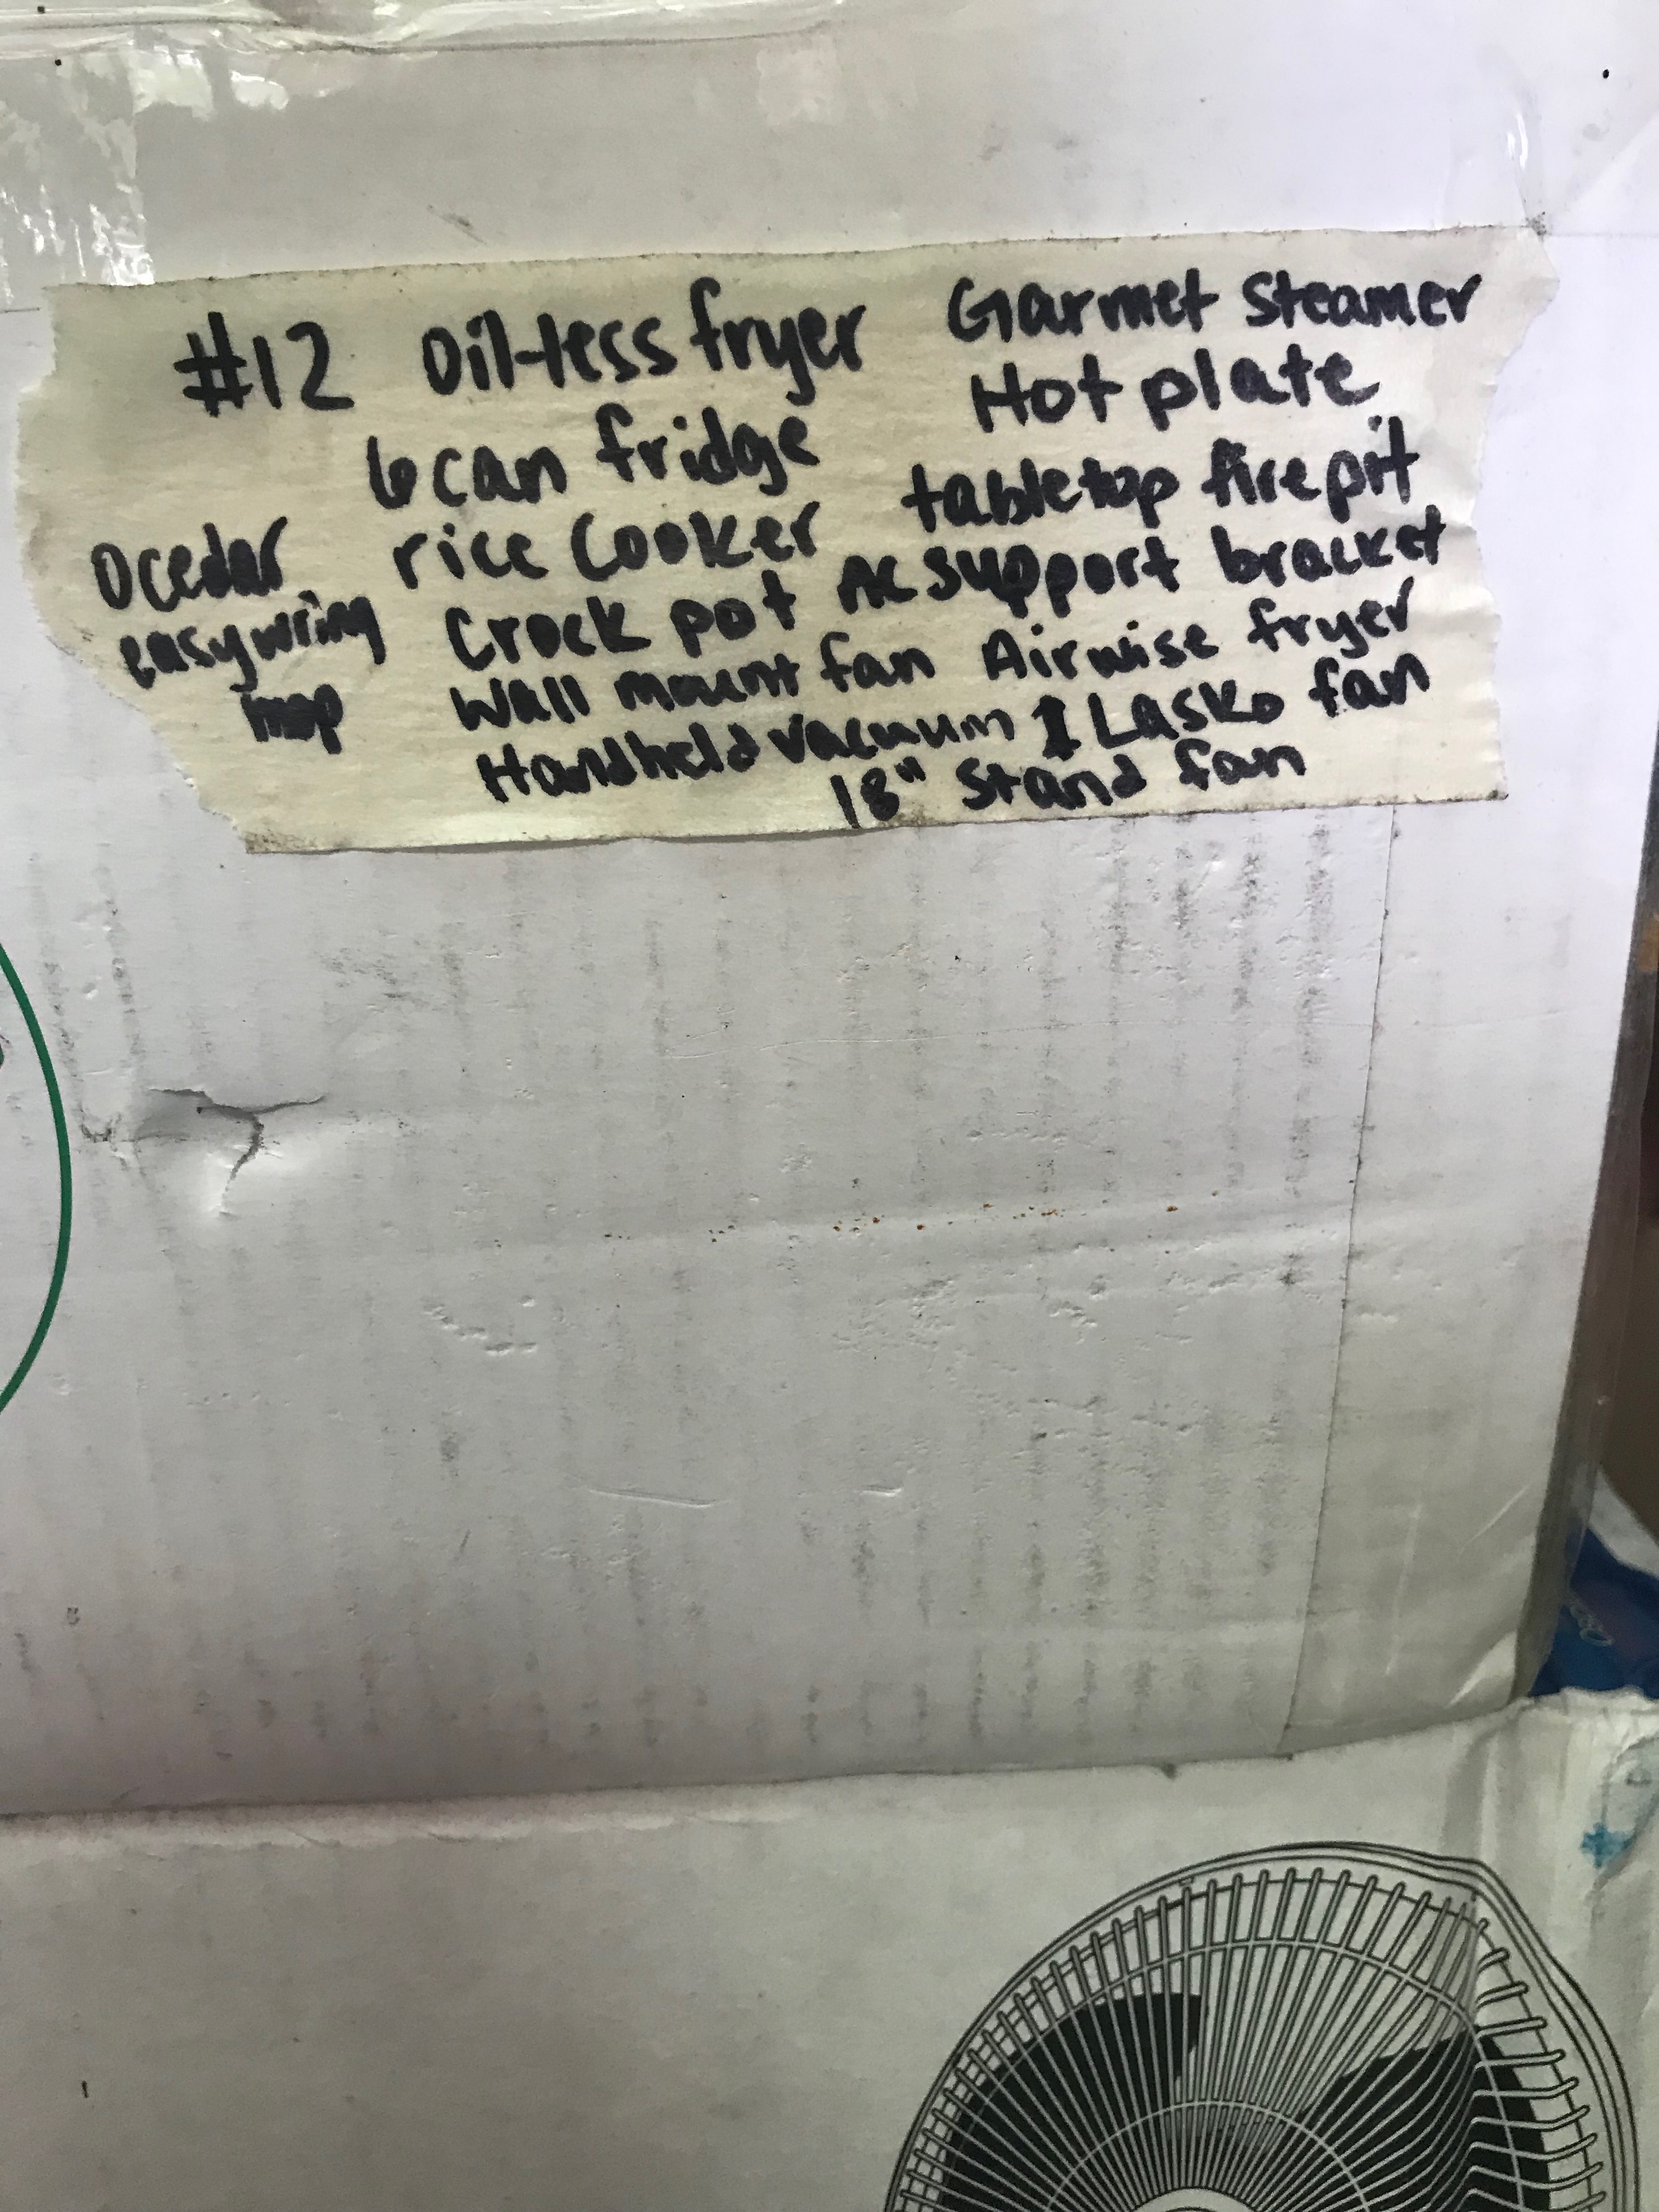 #12 Oil-less fryer Garmet Steamer
6 can fridge Hot plate
Ocedar rice Cooker tabletop firepit
easywring Crock pot AC support bracket
mop Wall mount fan Airwise fryer
Handheld vacuum 1 Lasko fan
18" Stand fan